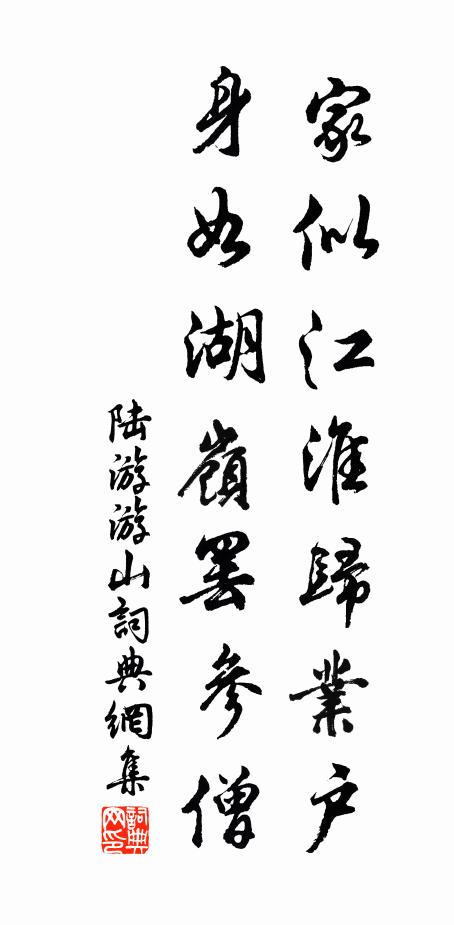 家似江淮歸業户
身如湖嶺罷參僧
陆游游山詞典網集
詞典网印